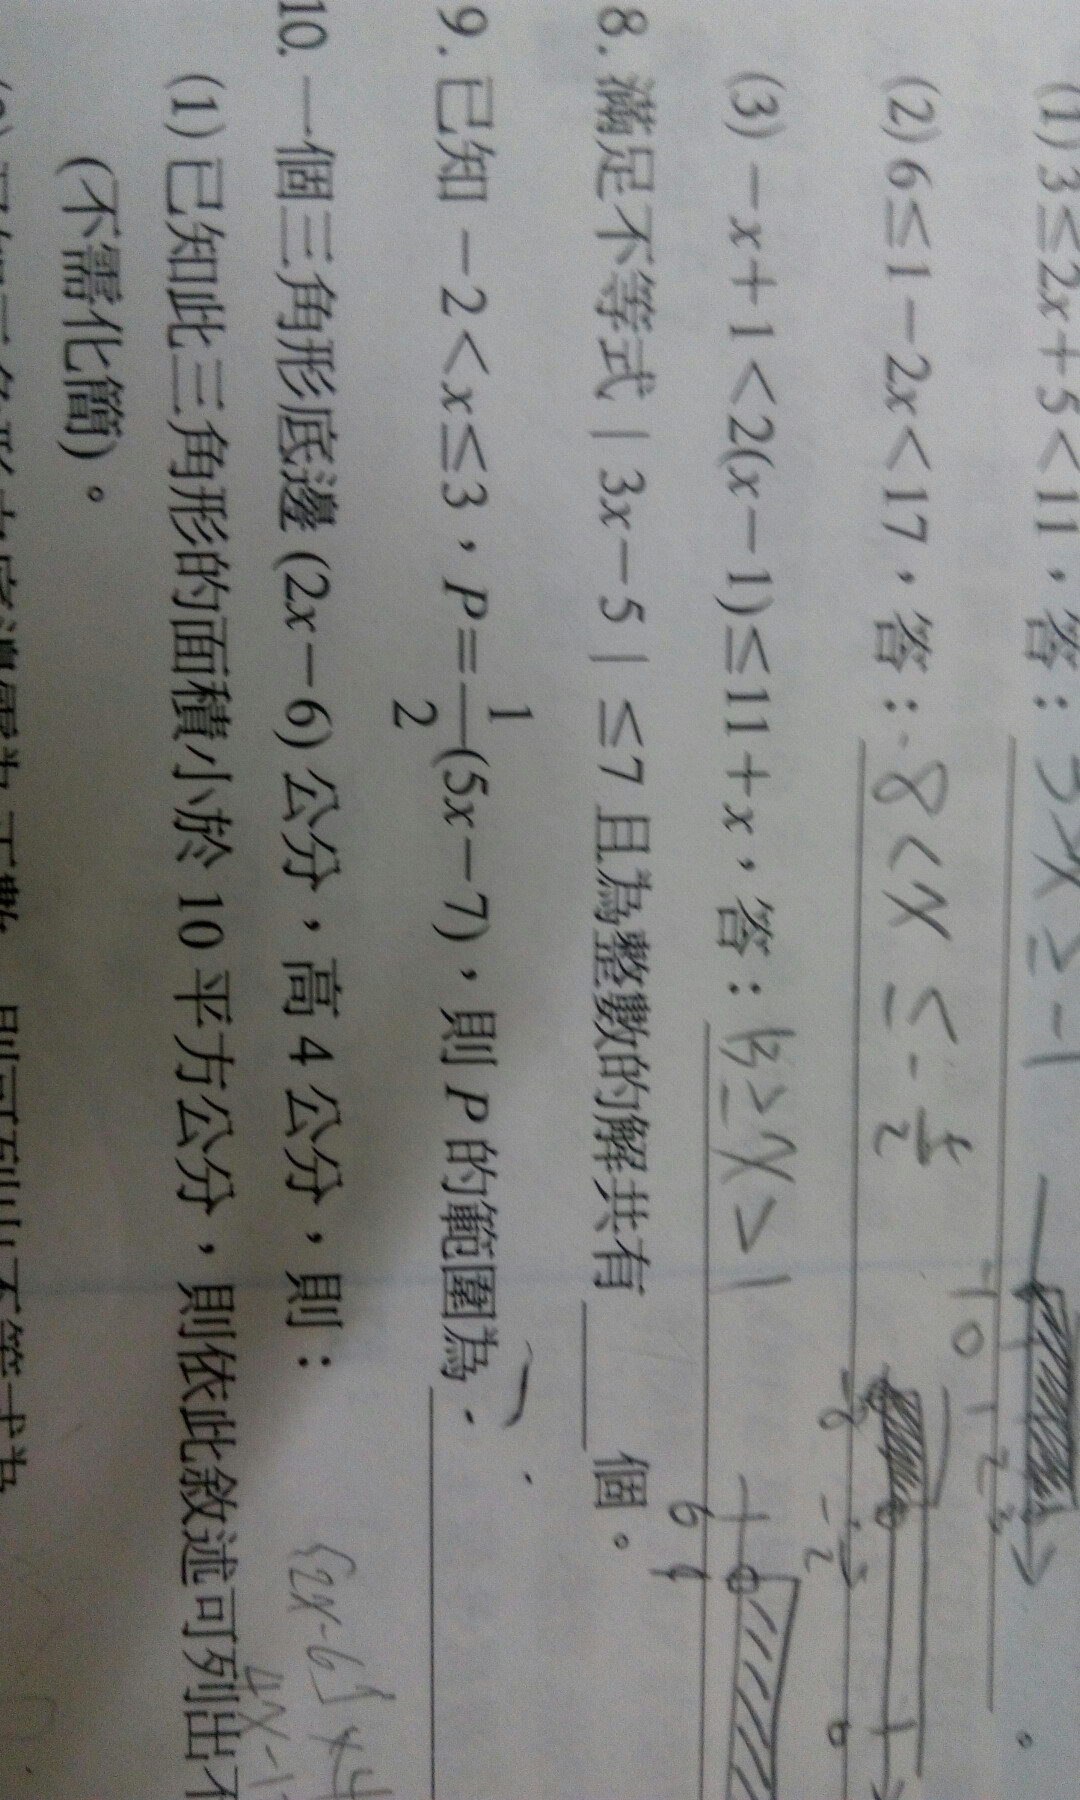 (1) 3≤2x+5<11，答：3>x≥-1
-1 0 1 2 3
(2) 6≤1-2x<17，答：-8<x≤-5/2
-8 -5/2 0
(3) -x+1<2(x-1)≤11+x，答：13≥x>1
0 1
8. 滿足不等式｜3x-5｜≤7 且為整數的解共有____個。
9. 已知 -2<x≤3，P=1/2(5x-7)，則 P 的範圍為
10. 一個三角形底邊 (2x-6) 公分，高 4 公分，則：
(2x-6)×4
(1) 已知此三角形的面積小於 10 平方公分，則依此敘述可列出不
4x-1
(不需化簡)。